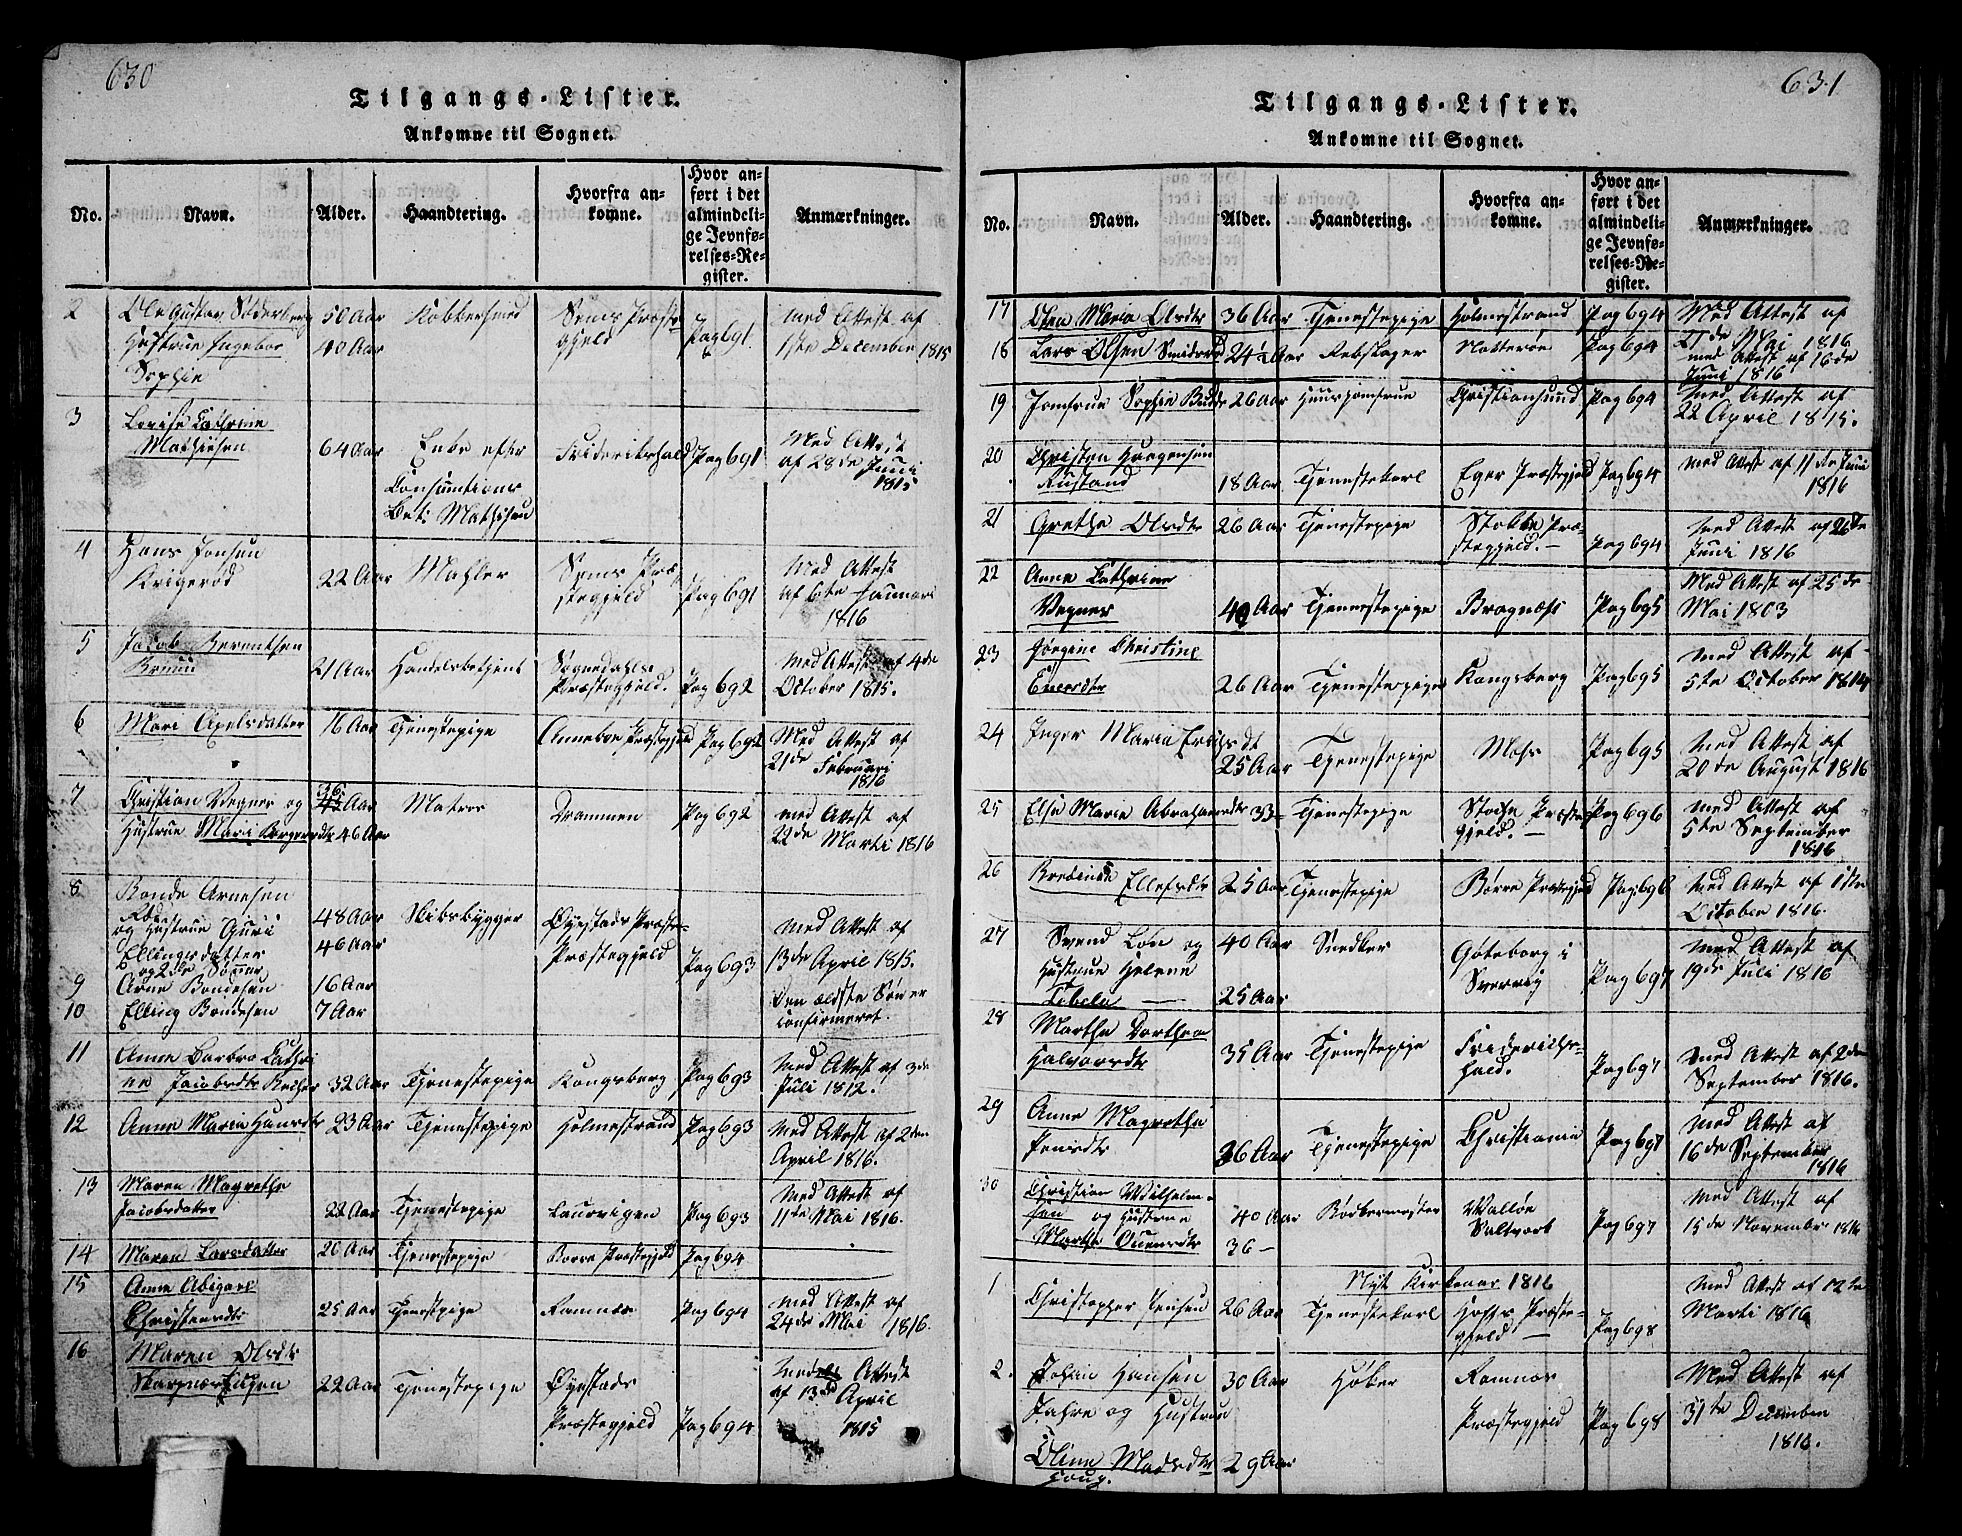 630
Tilgangs-Lister.
Ankomne til Sognet.
No. Navn. Alder. Haandtering. Hvorfra ankomne. Hvor anført i det almindelige Jevnførelses-Register. Anmærkninger.
2 Ole Gustav Söderberg 50 Aar Kobbersmed Sems Præste- Pag 691 med Attest af
Hustrue Ingebor 40 Aar gjeld 1ste December 1815
Sophie
3 Lovise Cathrine
Mathiesen 64 Aar Enke efter Friderikshald Pag 691 Med Attest
Consumtions af 28de Juni
Bet: Mathisen 1815
4 Hans Jensen
Krigerød 22 Aar Mahler Sems Præ- Pag 691 Med Attest
stegjeld af 6te Januari
1816
5 Jacob Berentsen
21 Aar Handelsbetjent Sognedahls Pag 692 Med Attest af 4de
Præstegjeld. October 1815.
6 Mari Axelsdatter 16 Aar Tjenestepige Anneboe Præstegjeld Pag 692 Med Attest af
21de Februari
1816
7 Christian Wegner og 45 Aar Matros Drammen Pag 692 med Attest af
Hustrue Mari 46 Aar 22de Marti 1816
8 Bonde Arnesen
og Hustrue Guri 48 Aar Skibsbygger Øyestads Præste- Med Attest af
Ellingsdatter 46 Aar Præstegjeld Pag 693 13de April 1815.
og 2de Sønner
9 Arne Bondesen 16 Aar Den ældste Søn er
10 Elling Bondesen 7 Aar confirmeret.
11 Anne Barbro Cathri
ne Jacobsdtr 32 Aar Tjenestepige Kongsberg Pag 693 Med Attest af 3de
Juli 1812.
12 Anne Maria Hansdtr 23 Aar Tjenestepige Holmestrand Pag 693 Med Attest af 2den
April 1816.
13 Maren Magrethe
Jacobsdatter 22 Aar Tjenestepige Laurvigen Pag 693 Med Attest af
11te Mai 1816.
14 Maren Larsdatter 20 Aar Tjenestepige Borre Præstegjeld Pag 694
15 Anne Abigael
Christensdtr 25 Aar Tjenestepige Ramnæs Pag 694 med Attest af
24de Mai 1816.
16 Maren Olsdtr
22 Aar Tjenestepige Øyestads Med Attest
Præstegjeld Pag 694 af 13de April
1815
631
Tilgangs-Lister.
Ankomne til Sognet.
No. Navn. Alder. Haandtering. Hvorfra ankomne. Hvor anført i det almindelige Jevnførelses-Register. Anmærkninger.
17 Olea Maria Olsdtr 36 Aar Tjenestepige Holmestrand Pag 694 Med Attest af
21de Mai 1816
18 Lars Olsen 24½ Aar Rebslager Nötterøe Pag 694 med Attest af 16de
Juni 1816
19 Jomfrue Sophie Budde 26 Aar Huusjomfrue Christiansund Pag 694 Med Attest af
22 April 1815.
20 Christen Hargensen
Rustand 18 Aar Tjenestekarl Eger Præstegjeld Pag 694 Med Attest af 11te Juni
1816
21 Grethe Olsdtr 26 Aar Tjenestepige Stokke Præ-
stegjeld.- Pag 694 Med Attest af 26de
Juni 1816
22 Anne Cathrine
Wegner 40 Aar Tjenestepige Bragnæss Pag 695 Med Attest af 25de
Mai 1803
23 Jørgine Christine
Enersdtr 26 Aar Tjenestepige Kongsberg Pag 695 Med Attest af
5te October 1814
24 Inger Maria Erichsdt
25 Aar Tjenestepige Moss Pag 695 Med Attest af
20de August 1816
25 Else Marie Abrahamsdtr 33- Tjenestepige Stocke Præste- Pag 696 Med Attest af
gjeld.- 5te September
1816
26 Bredine Ellefsdtr 25 Aar Tjenestepige Børre Præstegjeld Pag. 696 Med Attest af 1ste
October 1816.
27 Svend Løn og 40 Aar Snedker Gøteborg i Med Attest af
Hustrue Helene Sverrig Pag 697 19de Juli 1816
25 Aar
28 Marthe Dorthea
Halvorsdtr 35 Aar Tjenestepige Friderichs-
hald. Pag 697 Med Attest af 2den
September 1816.
29 Anne Magrethe
Jensdtr 36 Aar Tjenestepige Christiania Pag 697 Med Attest af
16de September
1816
30 Christian Wilhelm-
sen og Hustrue 40 Aar Bødkermester Walløe Med Attest af
Marthe 36 - Saltværk Pag 697 15de November 1816
Nyt Kirkeaar 1816
1 Christopher Jensen 26 Aar Tjenestekarl Hoffs Præste-
gjeld - Pag 698 Med Attest af 12te
Marti 1816
2. Johan Hansen 30 Aar Høker Ramnæs Med Attest af
Jahre og Hustrue Præstegjeld Pag 698 31te December
Oline Madsdtr 29 Aar 1816.